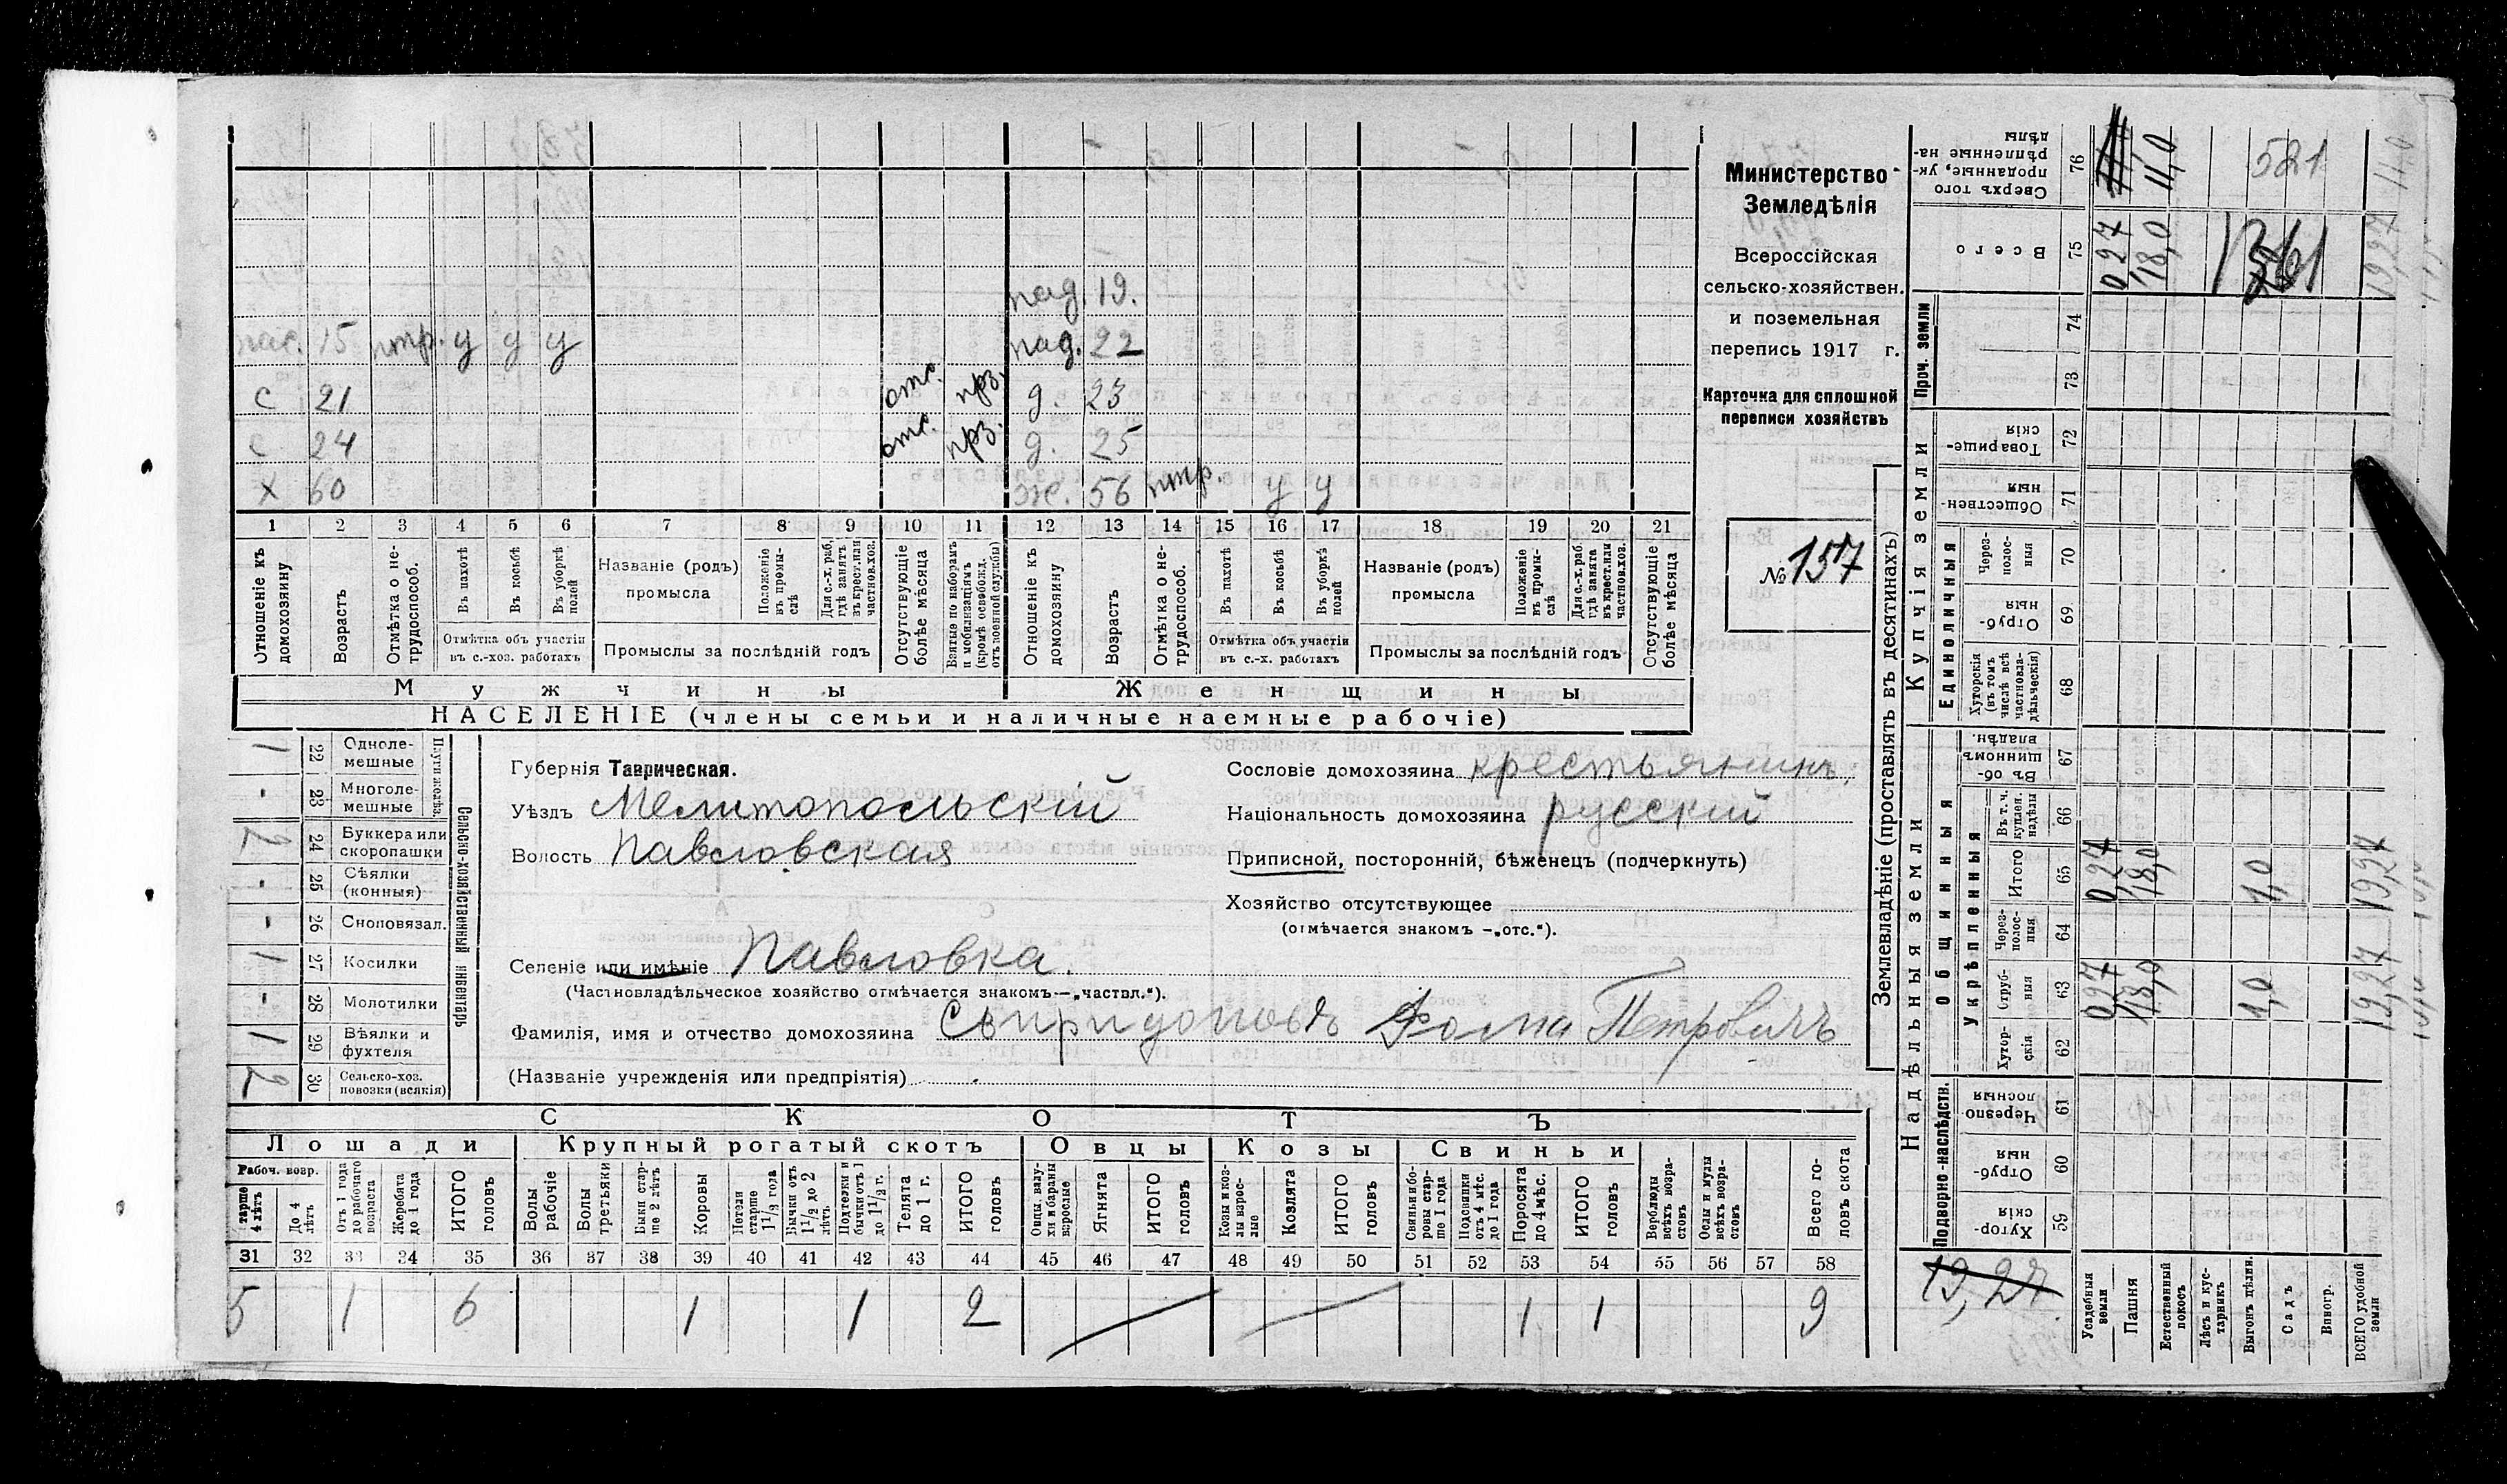 Министерство
Земледѣлія
Всероссійская
сельско-хозяйствен.
и поземельная
перепись 1917 г.
Карточка для сплошной
переписи хозяйствъ
№ 157
над. 19.
нас. 15 нтр. у у у над. 22
с 21 отс. прз. д. 23
с 24 отс. прз. д. 25
х 60 ж. 56 нтр. у у
1 2 3 4 5 6 7 8 9 10 11 12 13 14 15 16 17 18 19 20 21
Отношеніе къ домохозяину
Возрастъ
Отмѣтка о не-трудоспособ.
Въ пахотѣ
Въ косьбѣ
Въ уборкѣ полей
Отмѣтка объ участіи въ с.-хоз. работахъ
Названіе (родъ) промысла
Положеніе въ промы-слѣ
Для с.-х. раб, гдѣ занятъ въ крест. или частнов. хоз.
Промыслы за послѣдній годъ
Отсутствующіе болѣе мѣсяца
Взятые по наборамъ и мобилизаціямъ (кромѣ освобожд. отъ военной службы)
Отношеніе къ домохозяину
Возрастъ
Отмѣтка о не-трудоспособ.
Въ пахотѣ
Въ косьбѣ
Въ уборкѣ полей
Отмѣтка объ участіи въ с.-х. работахъ
Названіе (родъ) промысла
Положеніе въ промы-слѣ
Для с.-х. раб. гдѣ занята въ крест. или частнов. хоз.
Промыслы за послѣдній годъ
Отсутствующіе болѣе мѣсяца
Мужчины Женщины
НАСЕЛЕНІЕ (члены семьи и наличные наемные рабочіе)
Сельско-хозяйственный инвентарь
1 22 Одноле-мешные
- 23 Многоле-мешные
2 24 Буккера или скоропашки
- 25 Сѣялки (конныя)
- 26 Сноповязал.
1 27 Косилки
- 28 Молотилки
1 29 Вѣялки и фухтеля
2 30 Сельско-хоз. повозки (всякія)
Губернія Таврическая.
Уѣздъ Мелитопольскій
Волость Павловская
Селеніе или имѣніе Павловка.
(Частновладѣльческое хозяйство отмѣчается знакомъ—„частвл.“).
Фамилія, имя и отчество домохозяина Свиридоновъ Фома Петровичъ
(Названіе учрежденія или предпріятія)
Сословіе домохозяина крестьянинъ,
Національность домохозяина русскій
Приписной, посторонній, бѣженецъ (подчеркнуть)
Хозяйство отсутствующее
(отмѣчается знакомъ —„отс.“).
СКОТЪ
Лошади Крупный рогатый скотъ Овцы Козы Свиньи
Рабоч. возр.
старше 4 лѣтъ
До 4 лѣтъ
Отъ 1 года до рабочаго возраста
Жеребята до 1 года
ИТОГО головъ
Волы рабочіе
Волы третьяки
Быки стар-ше 2 лѣтъ
Коровы
Нетели старше 1 1/2 года
Бычки отъ 1 1/2 до 2 лѣтъ
Подтелки и бычки отъ 1 до 1 1/2 г.
Телята до 1 г.
ИТОГО головъ
Овцы, валу-хи и бараны взрослые
Ягнята
ИТОГО головъ
Козы и коз-лы взрос-лые
Козлята
ИТОГО головъ
Свиньи бо-ровы стар-ше 1 года
Подсвинки отъ 4 мѣс. до 1 года
Поросята до 4 мѣс.
ИТОГО головъ
Верблюды всѣхъ возра-стовъ
Ослы и мулы всѣхъ возра-стовъ
Всего го-ловъ скота
31 32 33 34 35 36 37 38 39 40 41 42 43 44 45 46 47 48 49 50 51 52 53 54 55 56 57 58
5 1 6 1 1 2 1 1 9
Землевладѣніе (проставлять въ десятинахъ)
Купчія земли
Надѣльныя земли
Проч. земли
Единоличныя
Общинныя
Укрѣпленныя
Подворно-наслѣдств.
Сверхъ того проданные, ук-рѣпленные на-дѣлы 76 11,0 521 11,0
Всего 75 0 27 18,0 1361 19,27
74
73
Товарище-скія 72
Обществен-ныя 71
Через-полос-ныя 70
Отруб-ныя 69
Хуторскія (въ томъ числѣ всѣ частновла-дѣльческія) 68
Въ об-щинномъ владѣн. 67
Въ т. ч. куплен. надѣлы 66
Итого 65 0,27 18,0 1,0 19,27
Через-полос-ныя 64
Отруб-ныя 63 0 27 18,0 1,0 19,27
Хутор-скія 62
Черезпо-лосныя 61
Отруб-ныя 60
Хутор-скія 59
19,27
Усадебныя земли
Пашня
Естественный покосъ
Лѣсъ и кус-тарникъ
Выгонъ цѣлин.
Садъ
Виногр.
ВСЕГО удобной земли